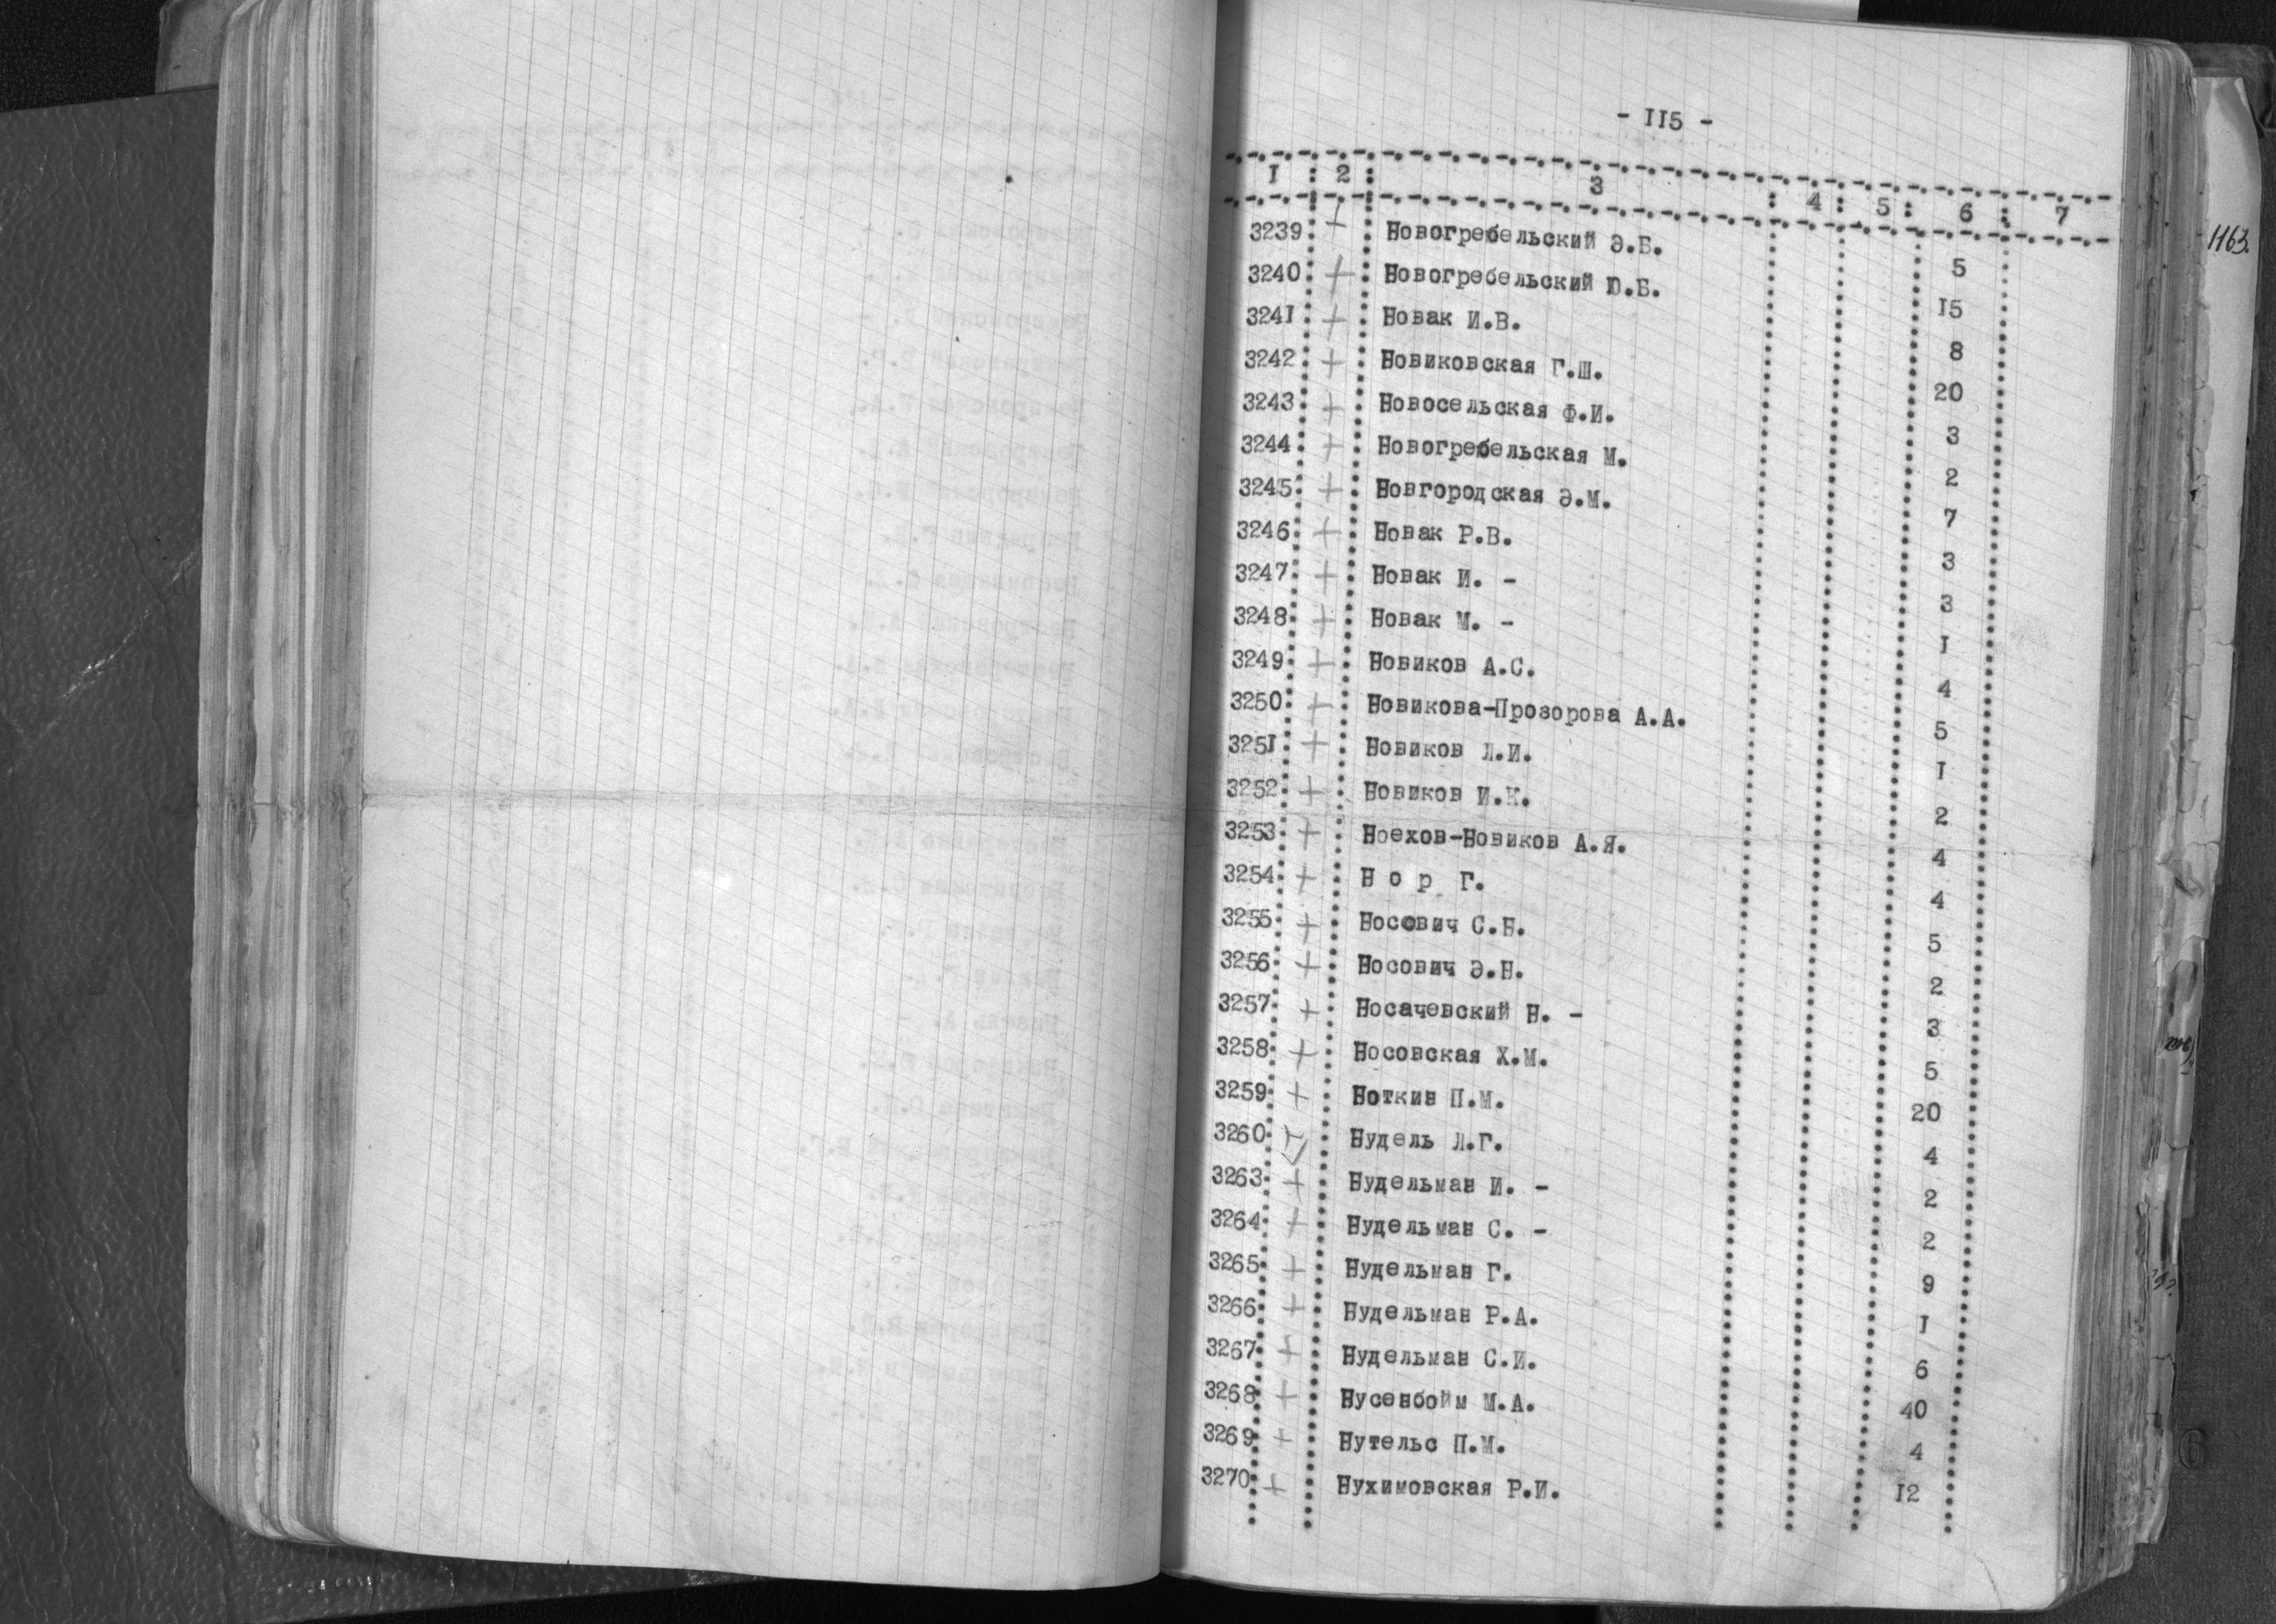 - II5 -
I : 2 : 3 : 4 : 5 : 6 : 7
1163.
3239 + Новогребельский Э.Б. 5
3240 + Новогребельский Ю.Б. I5
324I + Новак И.В. 8
3242 + Новиковская Г.Ш. 20
3243 + Новосельская Ф.И. 3
3244 + Новогребельская М. 2
3245 + Новгородская Э.М. 7
3246 + Новак Р.В. 3
3247 + Новак И. - 3
3248 + Новак М. - I
3249 + Новиков А.С. 4
3250 + Новикова-Прозорова А.А. 5
325I + Новиков Л.И. I
3252 + Новиков И.К. 2
3253 + Ноехов-Новиков А.Я. 4
3254 + Н о р Г. 4
3255 + Носович С.Н. 5
3256 + Носович Э.Н. 2
3257 + Носачевский Н. - 3
3258 + Носовская Х.М. 5
3259 + Ноткин П.М. 20
3260 Нудель Л.Г. 4
3263 + Нудельман И. - 2
3264 + Нудельман С. - 2
3265 + Нудельман Г. 9
3266 + Нудельман Р.А. I
3267 + Нудельман С.И. 6
3268 + Нусенбойм М.А. 40
3269 + Нутельс П.М. 4
3270 + Нухимовская Р.И. I2